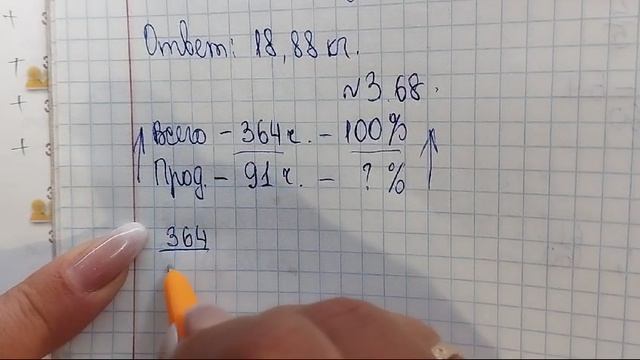 Ответ: 18,88 кг.
№3.68.
Всего – 364 ч. – 100%
Прод. – 91 ч. – ? %
364